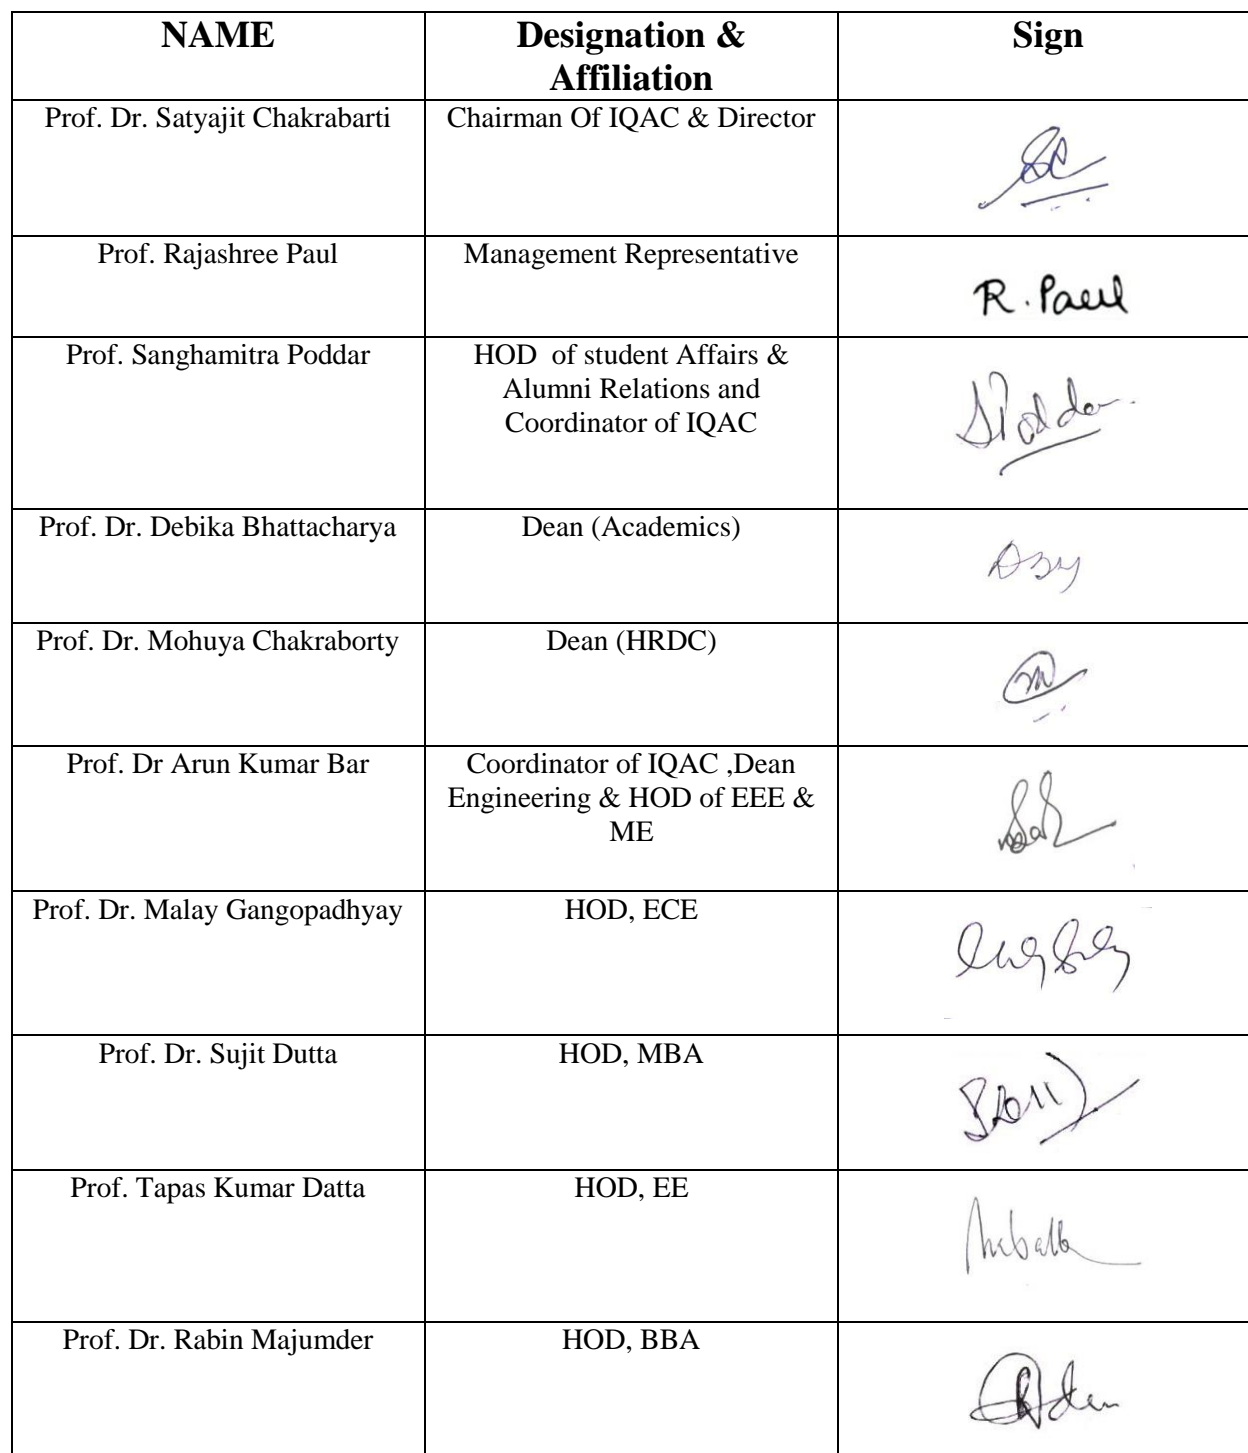 NAME Designation & Sign
Affiliation
Prof. Dr. Satyajit Chakrabarti Chairman Of IQAC & Director
Prof. Rajashree Paul Management Representative
R. Paul
Prof. Sanghamitra Poddar HOD of student Affairs &
Alumni Relations and
Coordinator of IQAC
SPoddar
Prof. Dr. Debika Bhattacharya Dean (Academics)
Prof. Dr. Mohuya Chakraborty Dean (HRDC)
Prof. Dr Arun Kumar Bar Coordinator of IQAC ,Dean
Engineering & HOD of EEE &
ME
Prof. Dr. Malay Gangopadhyay HOD, ECE
Prof. Dr. Sujit Dutta HOD, MBA
Prof. Tapas Kumar Datta HOD, EE
Prof. Dr. Rabin Majumder HOD, BBA